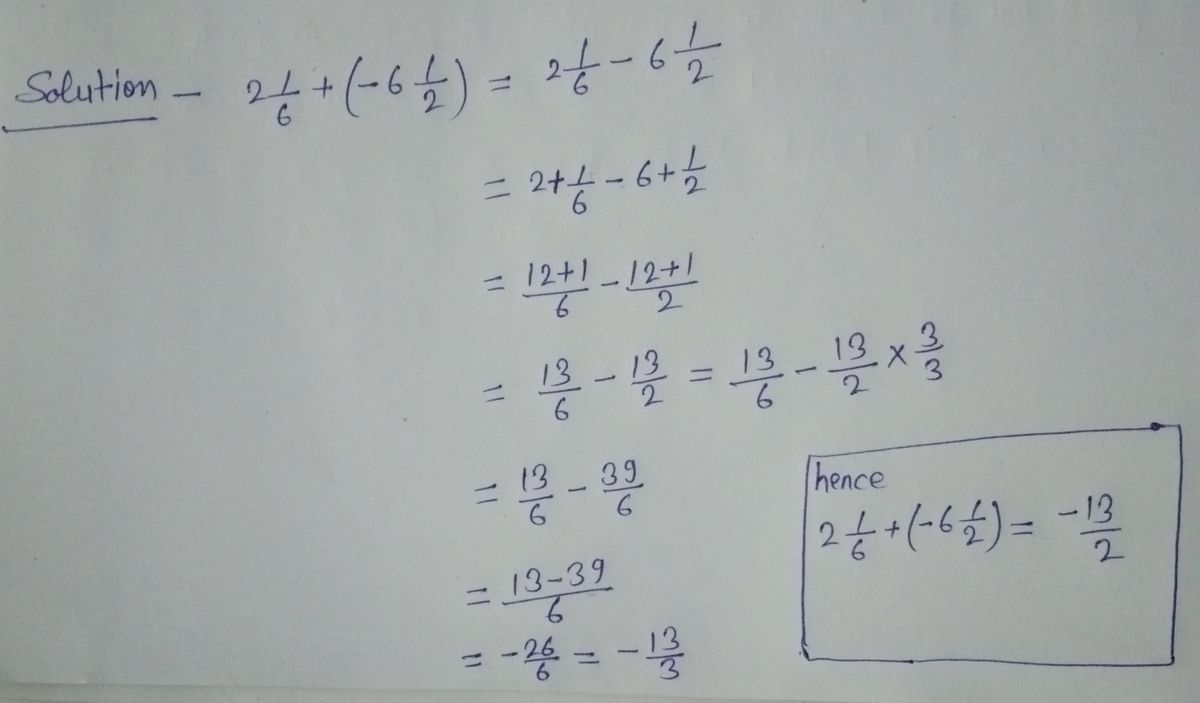 Solution - 2 1/6 + (-6 1/2) = 2 1/6 - 6 1/2
= 2+1/6 - 6+1/2
= 12+1/6 - 12+1/2
= 13/6 - 13/2 = 13/6 - 13/2 × 3/3
= 13/6 - 39/6
= 13-39/6
= -26/6 = -13/3
hence
2 1/6 + (-6 1/2) = -13/2